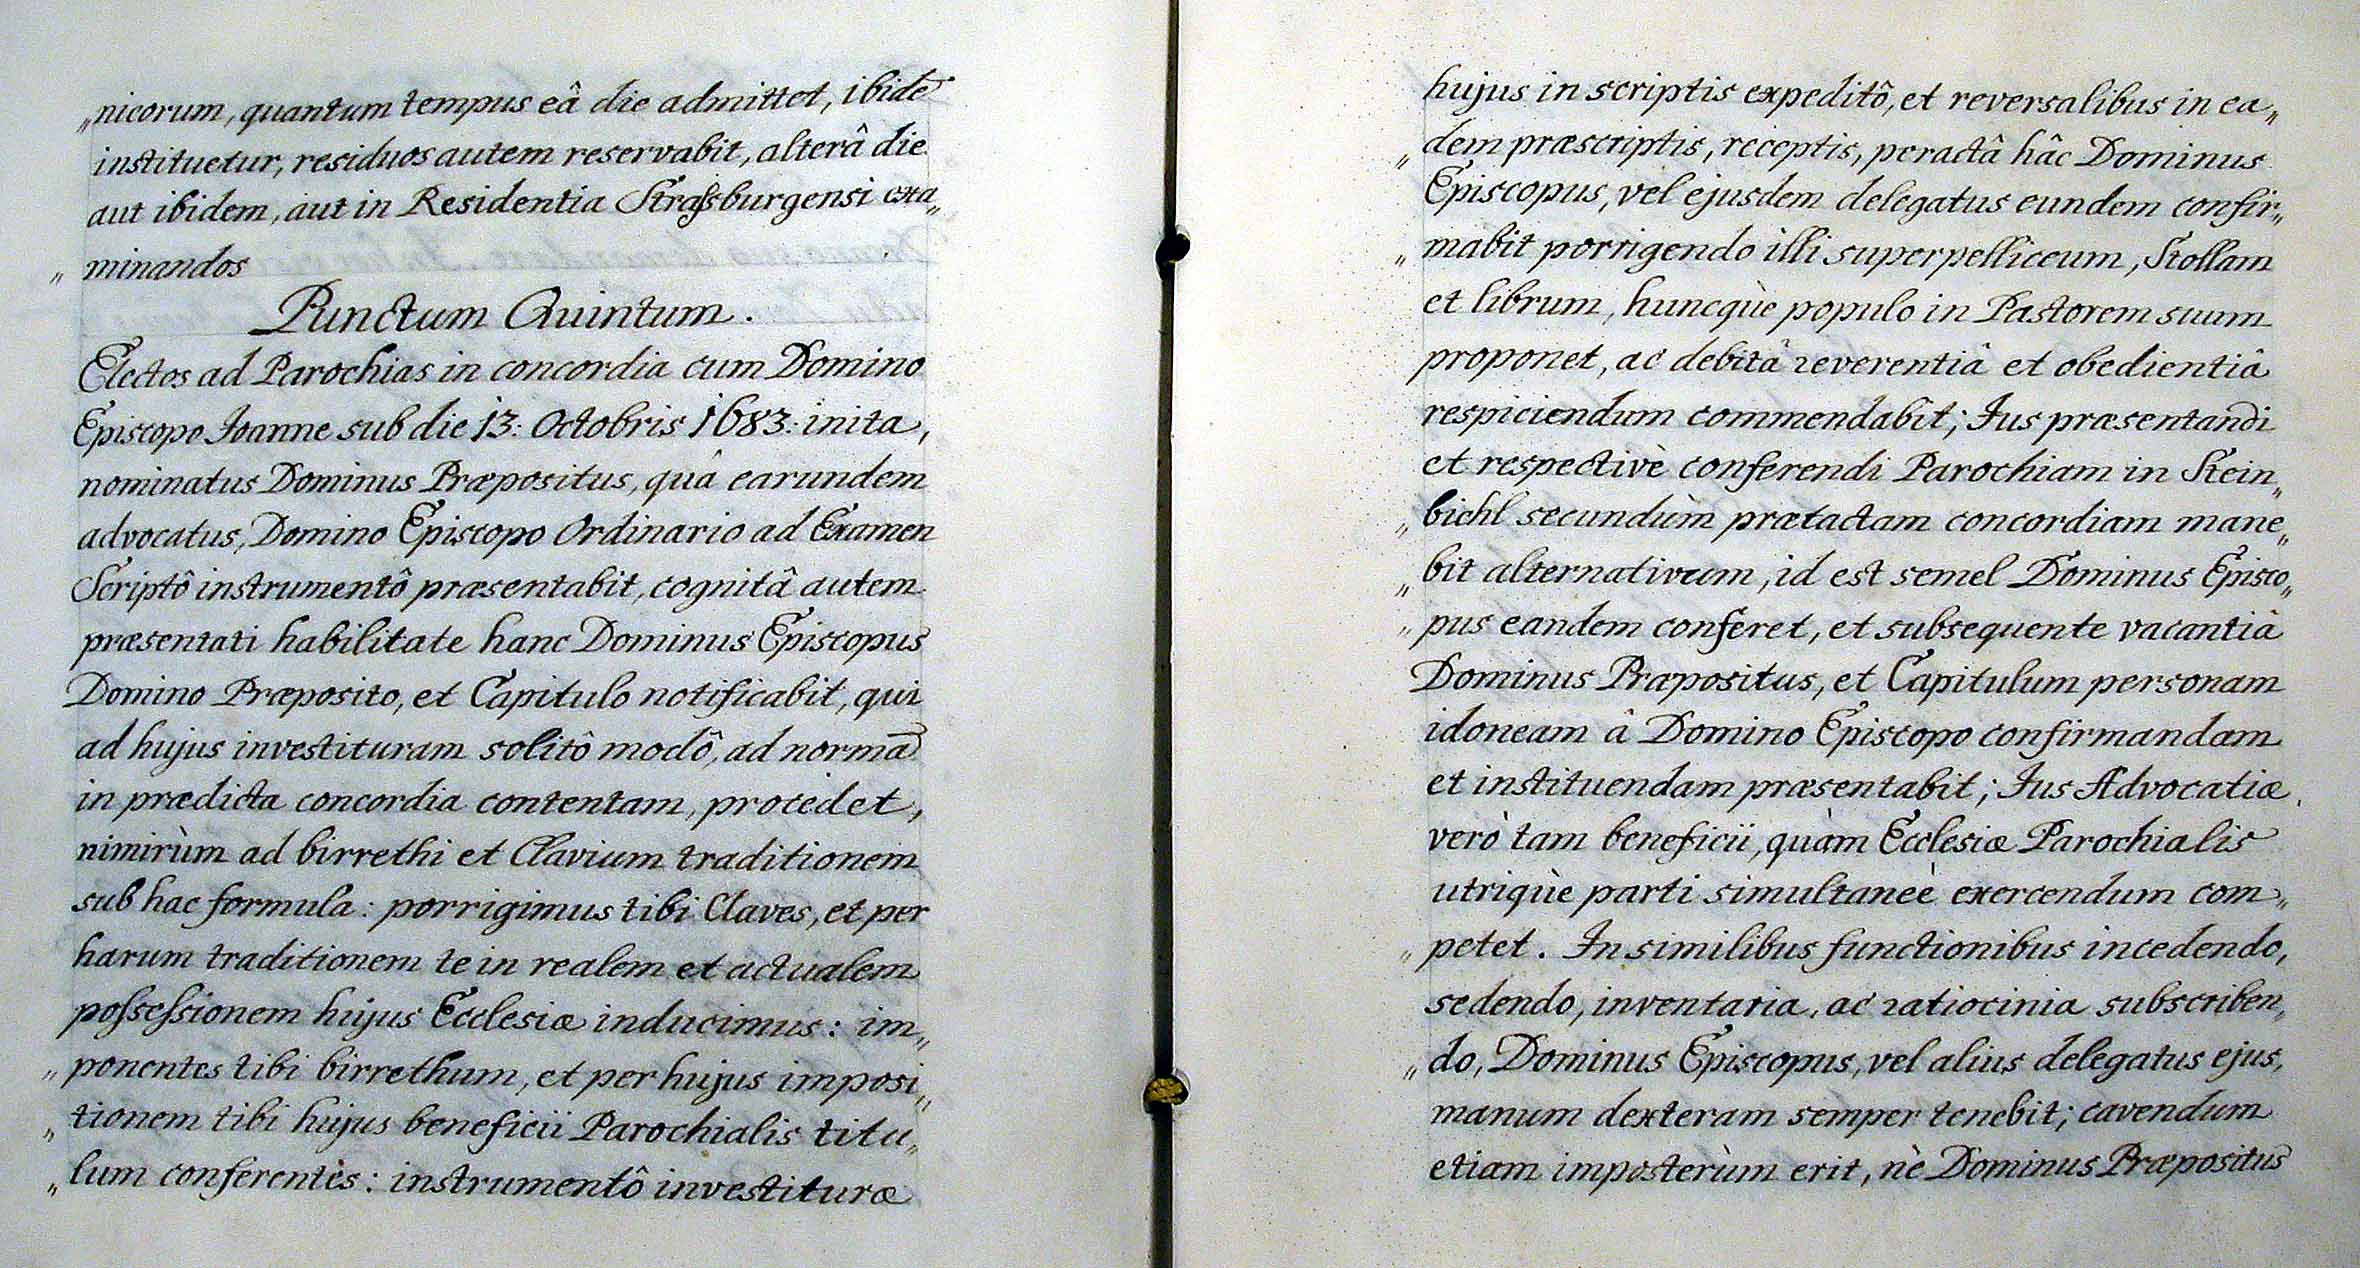 „nicorum, quantum tempus eâ die admittet, ibidē
instituetur, residuos autem reservabit, alterâ die
aut ibidem, aut in Residentia Straſsburgensi exa„
„ minandos
Punctum Quintum.
Electos ad Parochias in concordia cum Domino
Episcopo Joanne sub die 13: Octobris 1683: inita,
nominatus Dominus Præpositus, quâ earundem
advocatus, Domino Episcopo Ordinario ad Examen
Scriptô instrumentô præsentabit, cognitâ autem
præsentati habilitate hanc Dominus Episcopus
Domino Præposito, et Capitulo notificabit, qui
ad hujus investituram solitô modô, ad normā
in prædicta concordia contentam, procedet,
nimirùm ad birrethi et Clavium traditionem
sub hac formula: porrigimus tibi Claves, et per
harum traditionem te in realem et actualem
poſseſsionem hujus Ecclesiæ inducimus: im„
„ ponentes tibi birrethum, et per hujus imposi„
„ tionem tibi hujus beneficii Parochialis titu„
„ lum conferentes: instrumentô investituræ
hujus in scriptis expeditô, et reversalibus in ea„
„ dem præscriptis, receptis, peractâ hâc Dominus
Episcopus, vel ejusdem delegatus eundem confir„
„ mabit porrigendo illi superpelliceum, Stollam
et librum, huncque populo in Pastorem suum
proponet, ac debitâ reverentiâ et obedientiâ
respiciendum commendabit; Jus præsentandi
et respectivè conferendi Parochiam in Stein„
„ bichl secundùm prætactam concordiam mane„
„ bit alternativum, id est semel Dominus Episco„
„ pus eandem conferet, et subsequente vacantiâ
Dominus Præpositus, et Capitulum personam
idoneam â Domino Episcopo confirmandam
et instituendam præsentabit; Jus Advocatiæ
verò tam beneficii, quàm Ecclesiæ Parochialis
utrique parti simultaneè exercendum com„
„ petet. In similibus functionibus incedendo,
sedendo, inventaria, ac ratiocinia subscriben„
„ do, Dominus Episcopus, vel alius delegatus ejus,
manum dexteram semper tenebit; cavendum
etiam imposterùm erit, nè Dominus Præpositus